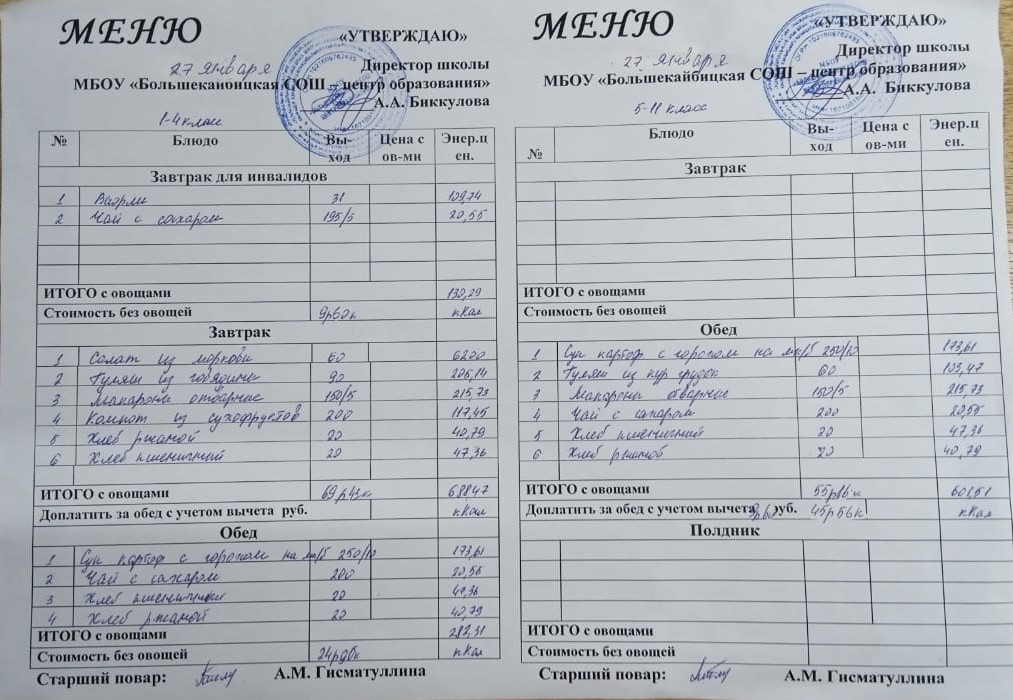 МЕНЮ
«УТВЕРЖДАЮ»
27 января
Директор школы
МБОУ «Большекайбицкая СОШ – центр образования»
А.А. Биккулова
1-4 класс
№ Блюдо Вы-ход Цена с ов-ми Энер.цен.
Завтрак для инвалидов
1 Вафли 31 109,74
2 Чай с сахаром 195/5 20,55
ИТОГО с овощами 130,29
Стоимость без овощей кКал
Завтрак
1 Салат из моркови 60 6200
2 Гуляш из говядины 90 205,14
3 Макароны отварные 150/5 215,73
4 Компот из сухофруктов 200 117,45
5 Хлеб ржаной 20 40,79
6 Хлеб пшеничный 20 47,36
ИТОГО с овощами 69р43к 688,47
Доплатить за обед с учетом вычета руб. кКал
Обед
1 Суп картоф с горохом на мк/б 250/10 173,61
2 Чай с сахаром 200 20,56
3 Хлеб пшеничный 20 47,36
4 Хлеб ржаной 20 40,79
ИТОГО с овощами 282,31
Стоимость без овощей кКал
Старший повар: А.М. Гисматуллина
МЕНЮ
«УТВЕРЖДАЮ»
27 января
Директор школы
МБОУ «Большекайбицкая СОШ – центр образования»
А.А. Биккулова
5-11 класс
№ Блюдо Вы-ход Цена с ов-ми Энер.цен.
Завтрак
ИТОГО с овощами
Стоимость без овощей
Обед
1 Суп картоф с горохом на мк/б 250/10 173,61
2 Гуляш из кур грудок 60 103,47
3 Макароны отварные 150/5 215,73
4 Чай с сахаром 200 20,55
5 Хлеб пшеничный 20 47,36
6 Хлеб ржаной 20 40,79
ИТОГО с овощами 55р16к 601,51
Доплатить за обед с учетом вычета руб. 45р56к кКал
Полдник
ИТОГО с овощами
Стоимость без овощей
Старший повар: А.М. Гисматуллина